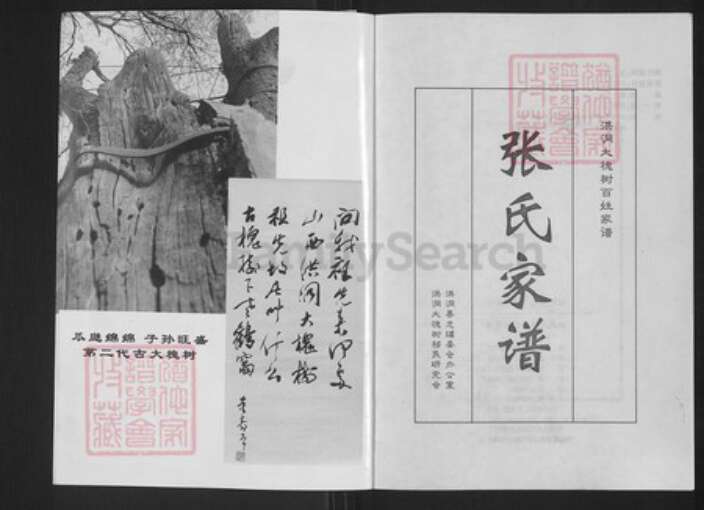 瓜瓞绵绵 子孙旺盛
第二代古大槐树
问我祖先来何处
山西洪洞大槐树
祖先故居叫什么
古槐树下老鹳窝
洪洞大槐树百姓家谱
张氏家谱
洪洞县志编委会办公室
洪洞大槐树移民研究会
FamilySearch